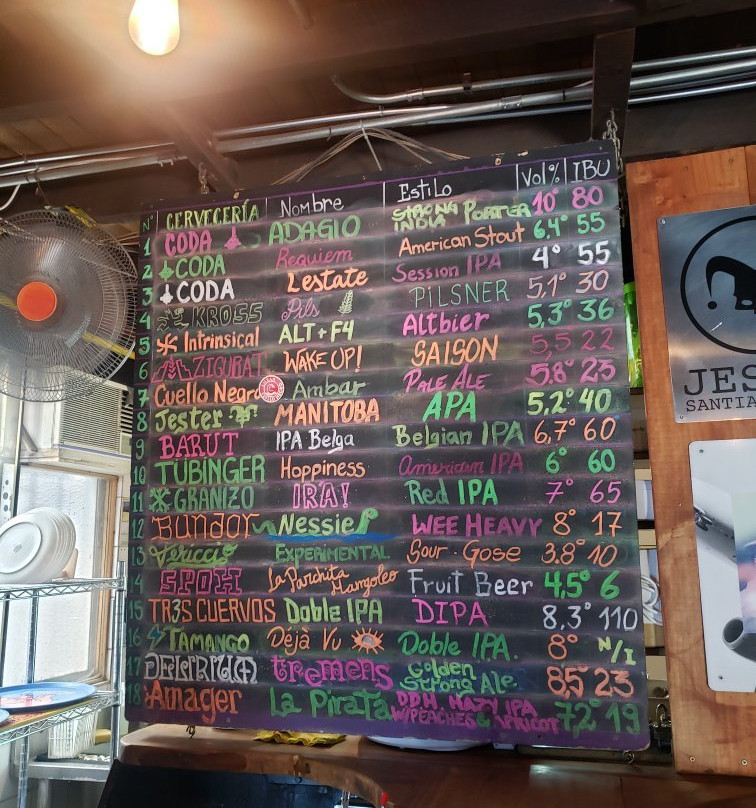 N° CERVECERÍA Nombre Estilo Vol% IBU
1 CODA ADAGIO STRONG INDIA PORTER 10° 80
2 CODA Requiem American Stout 6.4° 55
3 CODA Lestate Session IPA 4° 55
4 KROSS Pils PILSNER 5,1° 30
5 Intrinsical ALT+F4 Altbier 5,3° 36
6 ZIGURAT WAKE UP! SAISON 5,5 22
7 Cuello Negro Ambar PALE ALE 5.8° 23
8 Jester MANITOBA APA 5,2° 40
9 BARUT IPA Belga Belgian IPA 6,7° 60
10 TÜBINGER Hoppiness American IPA 6° 60
11 GRANIZO IRA! Red IPA 7° 65
12 BUNDOR Nessie WEE HEAVY 8° 17
13 EXPERIMENTAL Sour-Gose 3.8° 10
14 SPOH La Parchita Mangoleo Fruit Beer 4,5° 6
15 TR3S CUERVOS Doble IPA DIPA 8,3° 110
16 TAMANGO Déjà Vu Doble IPA. 8° N/I
17 DELIRIUM tremens Golden Strong Ale. 8,5 23
18 Amager La Pirata DDH HAZY IPA W/PEACHES & APRICOT 7,2° 19
JES
SANTIA